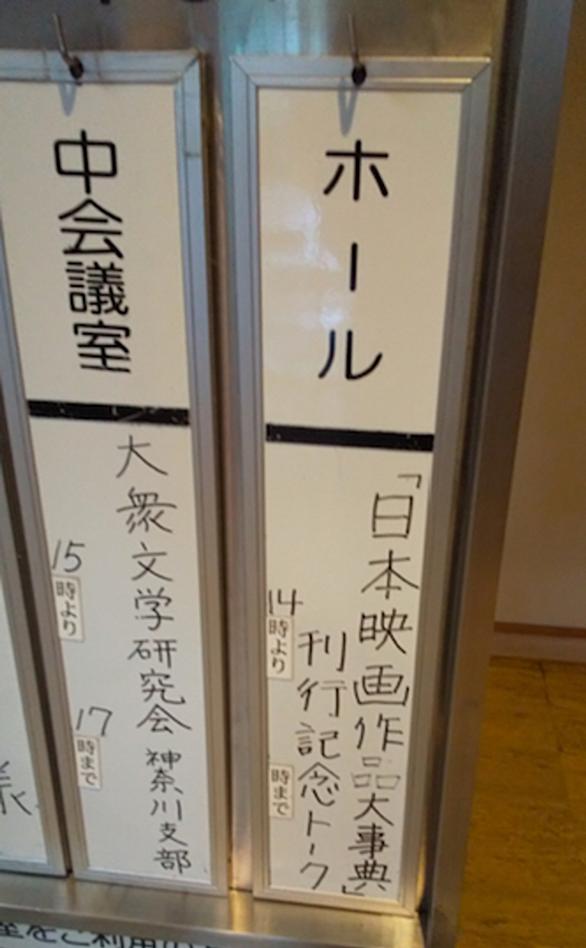 ホール
「日本映画作品大事典」
刊行記念トーク
14時より
時まで
中会議室
大衆文学研究会 神奈川支部
15時より
17時まで